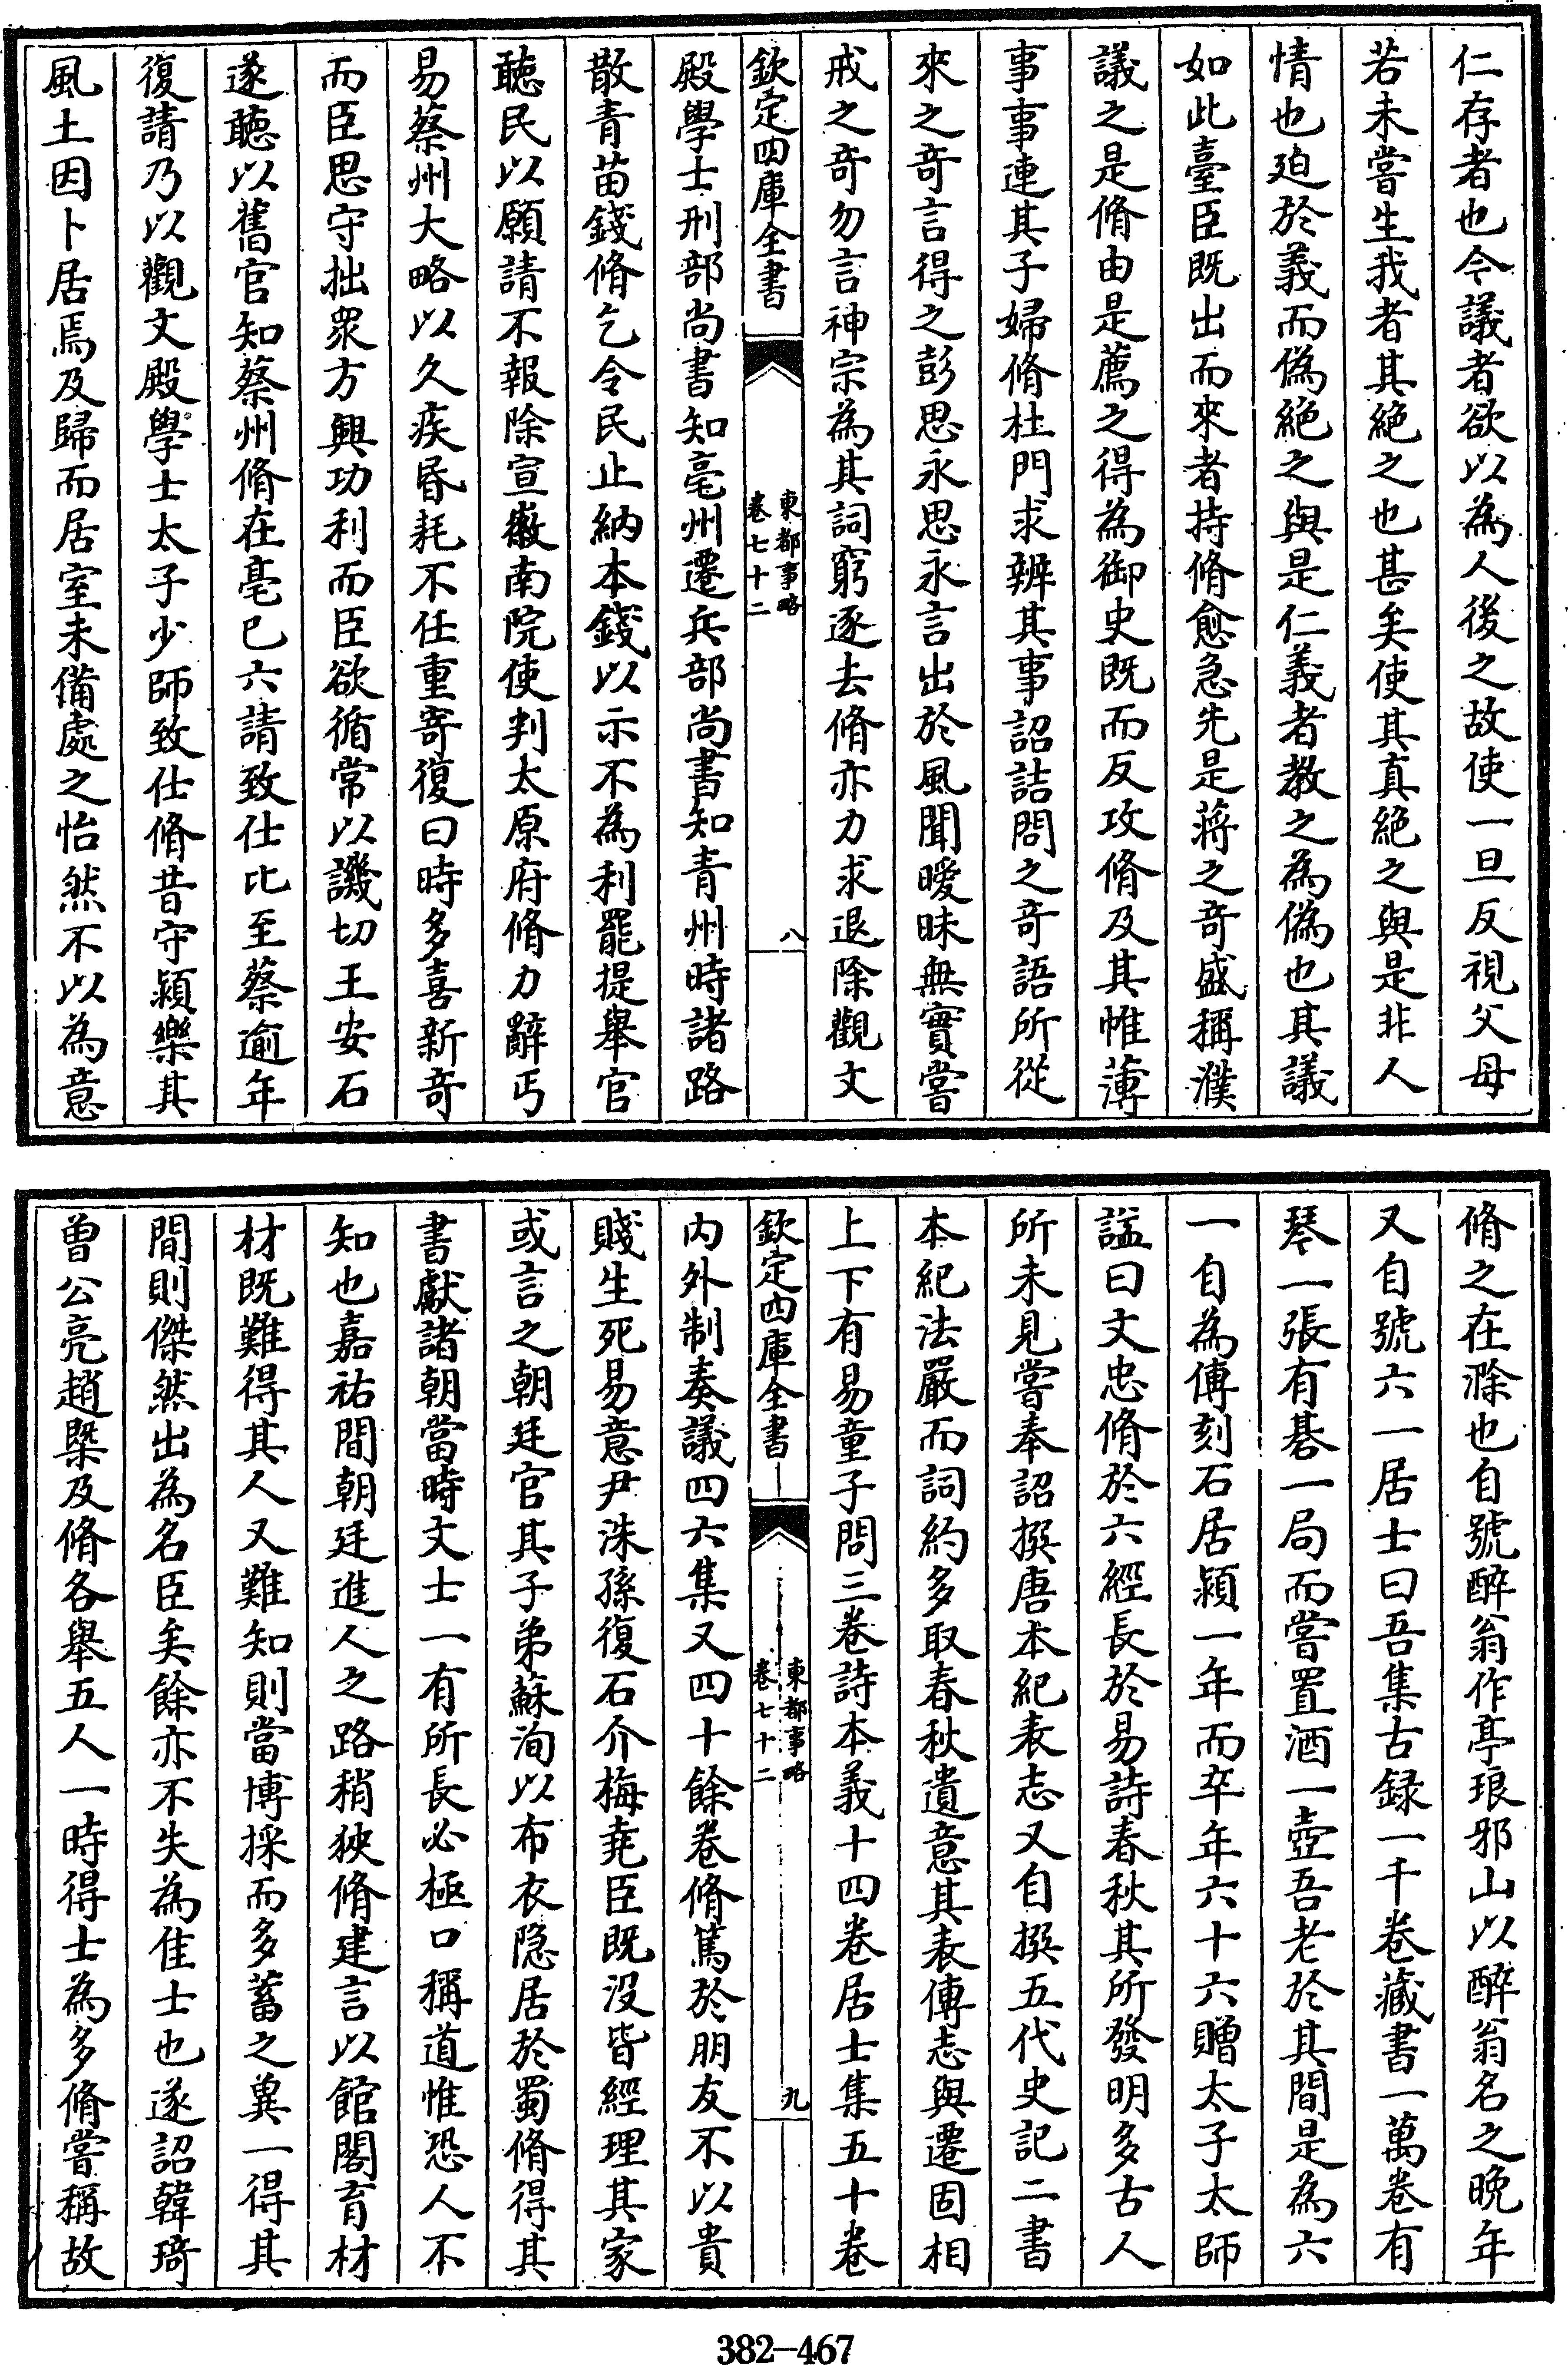 仁存者也今議者欲以為人後之故使一旦反視父母
若未嘗生我者其絶之也甚矣使其真絶之與是非人
情也廹於義而偽絶之與是仁義者教之為偽也其議
如此臺臣既出而來者持脩愈急先是蔣之奇盛稱濮
議之是脩由是薦之得為御史既而反攻脩及其帷薄
事事連其子婦脩杜門求辨其事詔詰問之奇語所從
來之奇言得之彭思永思永言出於風聞曖昧無實嘗
戒之奇勿言神宗為其詞窮逐去脩亦力求退除觀文
欽定四庫全書
東都事略
卷七十二
八
殿學士刑部尚書知亳州遷兵部尚書知青州時諸路
散青苗錢脩乞令民止納本錢以示不為利罷提舉官
聽民以願請不報除宣徽南院使判太原府脩力辭丐
易蔡州大略以久疾昬耗不任重寄復曰時多喜新奇
而臣思守拙衆方興功利而臣欲循常以譏切王安石
遂聽以舊官知蔡州脩在亳已六請致仕比至蔡逾年
復請乃以觀文殿學士太子少師致仕脩昔守潁樂其
風土因卜居焉及歸而居室未備處之怡然不以為意
脩之在滁也自號醉翁作亭琅邪山以醉翁名之晚年
又自號六一居士曰吾集古録一千卷藏書一萬卷有
琴一張有棊一局而嘗置酒一壺吾老於其間是為六
一自為傳刻石居潁一年而卒年六十六贈太子太師
諡曰文忠脩於六經長於易詩春秋其所發明多古人
所未見嘗奉詔撰唐本紀表志又自撰五代史記二書
本紀法嚴而詞約多取春秋遺意其表傳志與遷固相
上下有易童子問三卷詩本義十四卷居士集五十卷
欽定四庫全書
東都事略
卷七十二
九
内外制奏議四六集又四十餘卷脩篤於朋友不以貴
賤生死易意尹洙孫復石介梅堯臣既没皆經理其家
或言之朝廷官其子弟蘇洵以布衣隱居於蜀脩得其
書獻諸朝當時文士一有所長必極口稱道惟恐人不
知也嘉祐間朝廷進人之路稍狹脩建言以館閣育材
材既難得其人又難知則當博採而多蓄之兾一得其
間則傑然出為名臣矣餘亦不失為佳士也遂詔韓琦
曾公亮趙槩及脩各舉五人一時得士為多脩嘗稱故
382-467